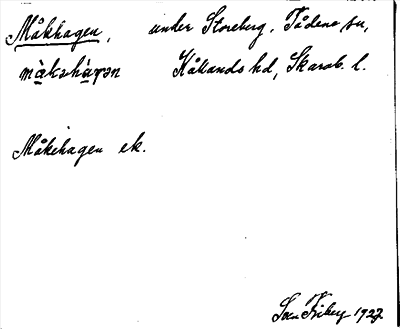 Måkhagen, under Storeberg, Tådene sn,
màkəhàgən Kållands hd, Skarab. l.
Måkehagen ek.
Sven Friberg 1927